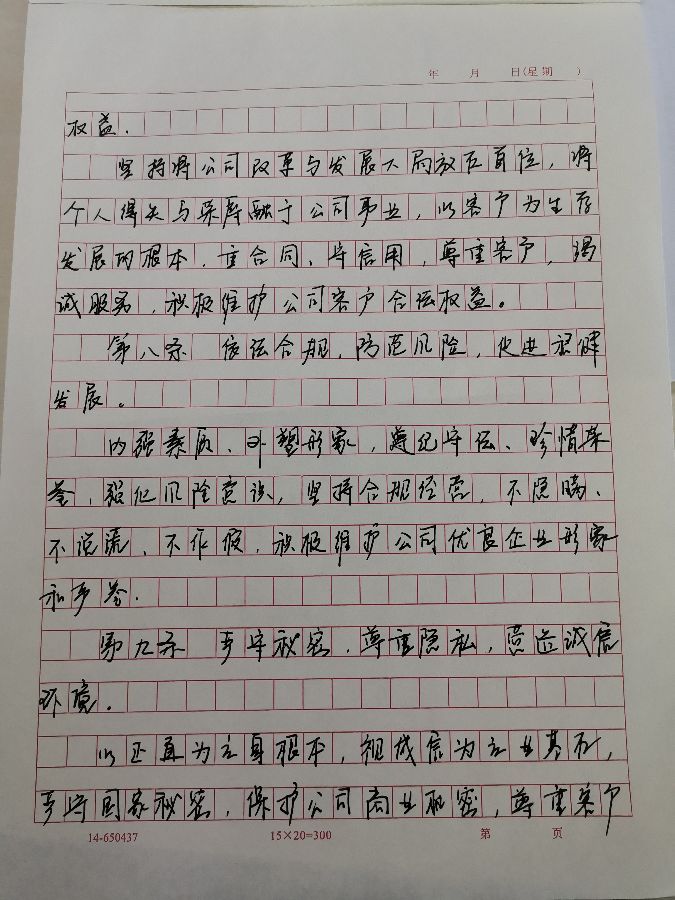 年 月 日(星期 )
权益.
坚持将公司改革与发展大局放在首位,将
个人得失与荣辱融于公司事业,以客户为生存
发展的根本.重合同、守信用,尊重客户,竭
诚服务,积极维护公司客户合法权益。
第八条 依法合规,防范风险,促进稳健
发展。
内强素质、外塑形象,遵纪守法、珍惜荣
誉,强化风险意识,坚持合规经营,不隐瞒、
不说谎、不作假,积极维护公司优良企业形象
和声誉.
第九条 严守秘密,尊重隐私,营造诚信
环境。
以正直为立身根本,视诚信为立业基石,
严守国家秘密,保护公司商业机密,尊重客户
14-650437 15×20=300 第 页